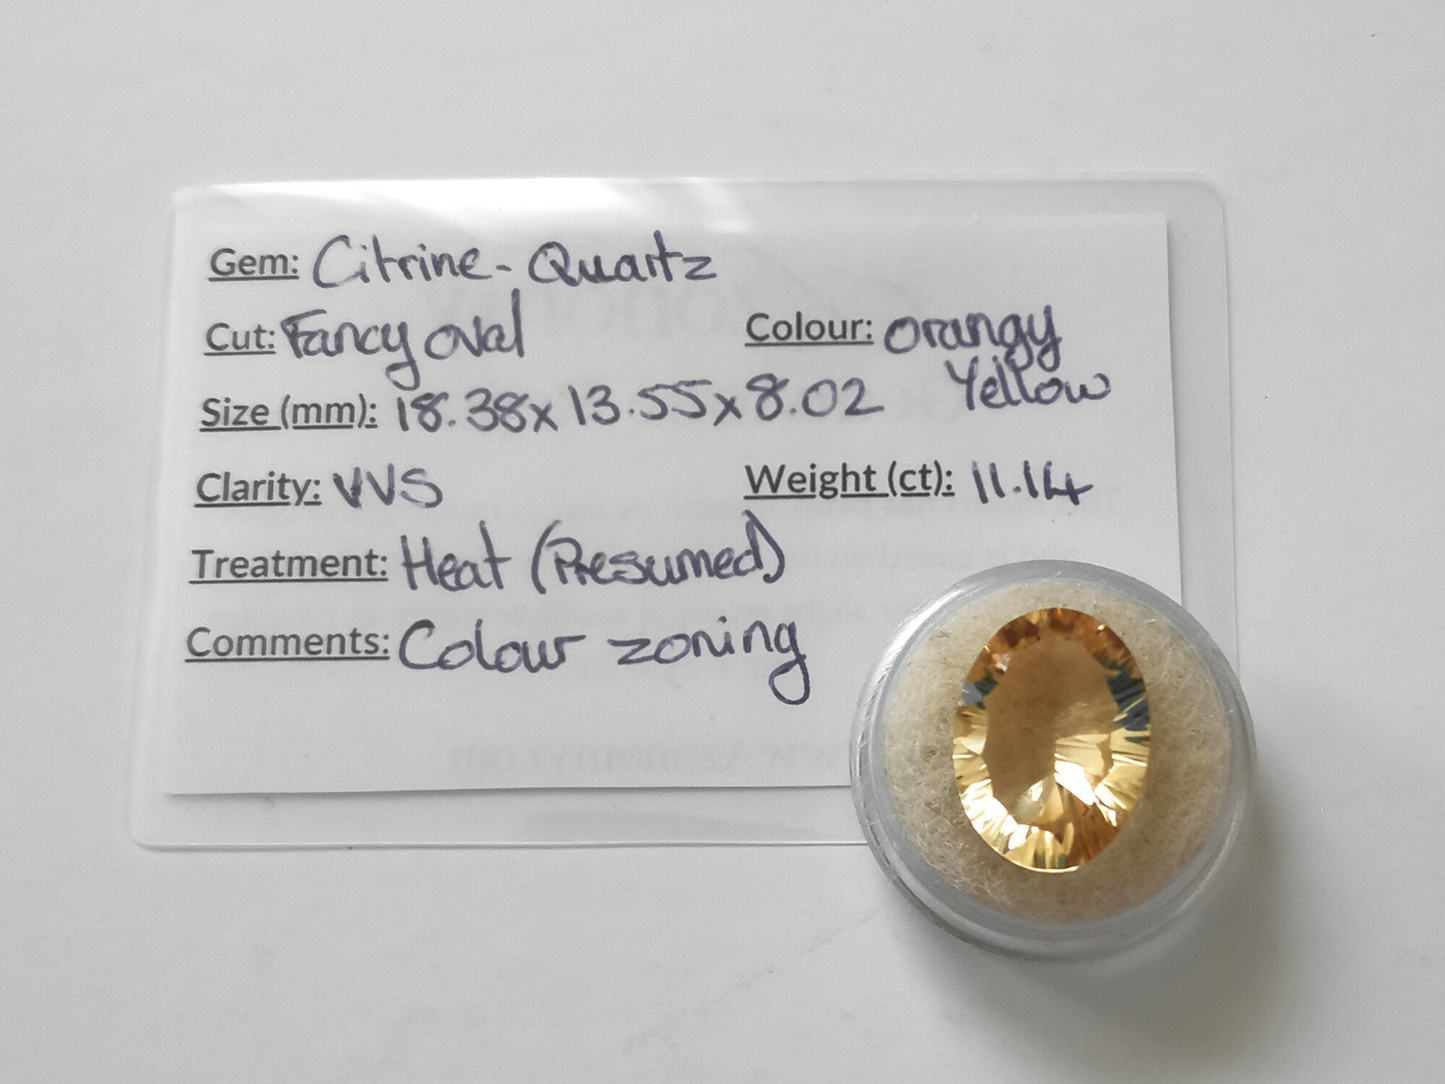 Gem: Citrine-Quartz
Cut: Fancy oval Colour: orangy
Yellow
Size (mm): 18.38x13.55x8.02
Clarity: VVS Weight (ct): 11.14
Treatment: Heat (Presumed)
Comments: Colour zoning